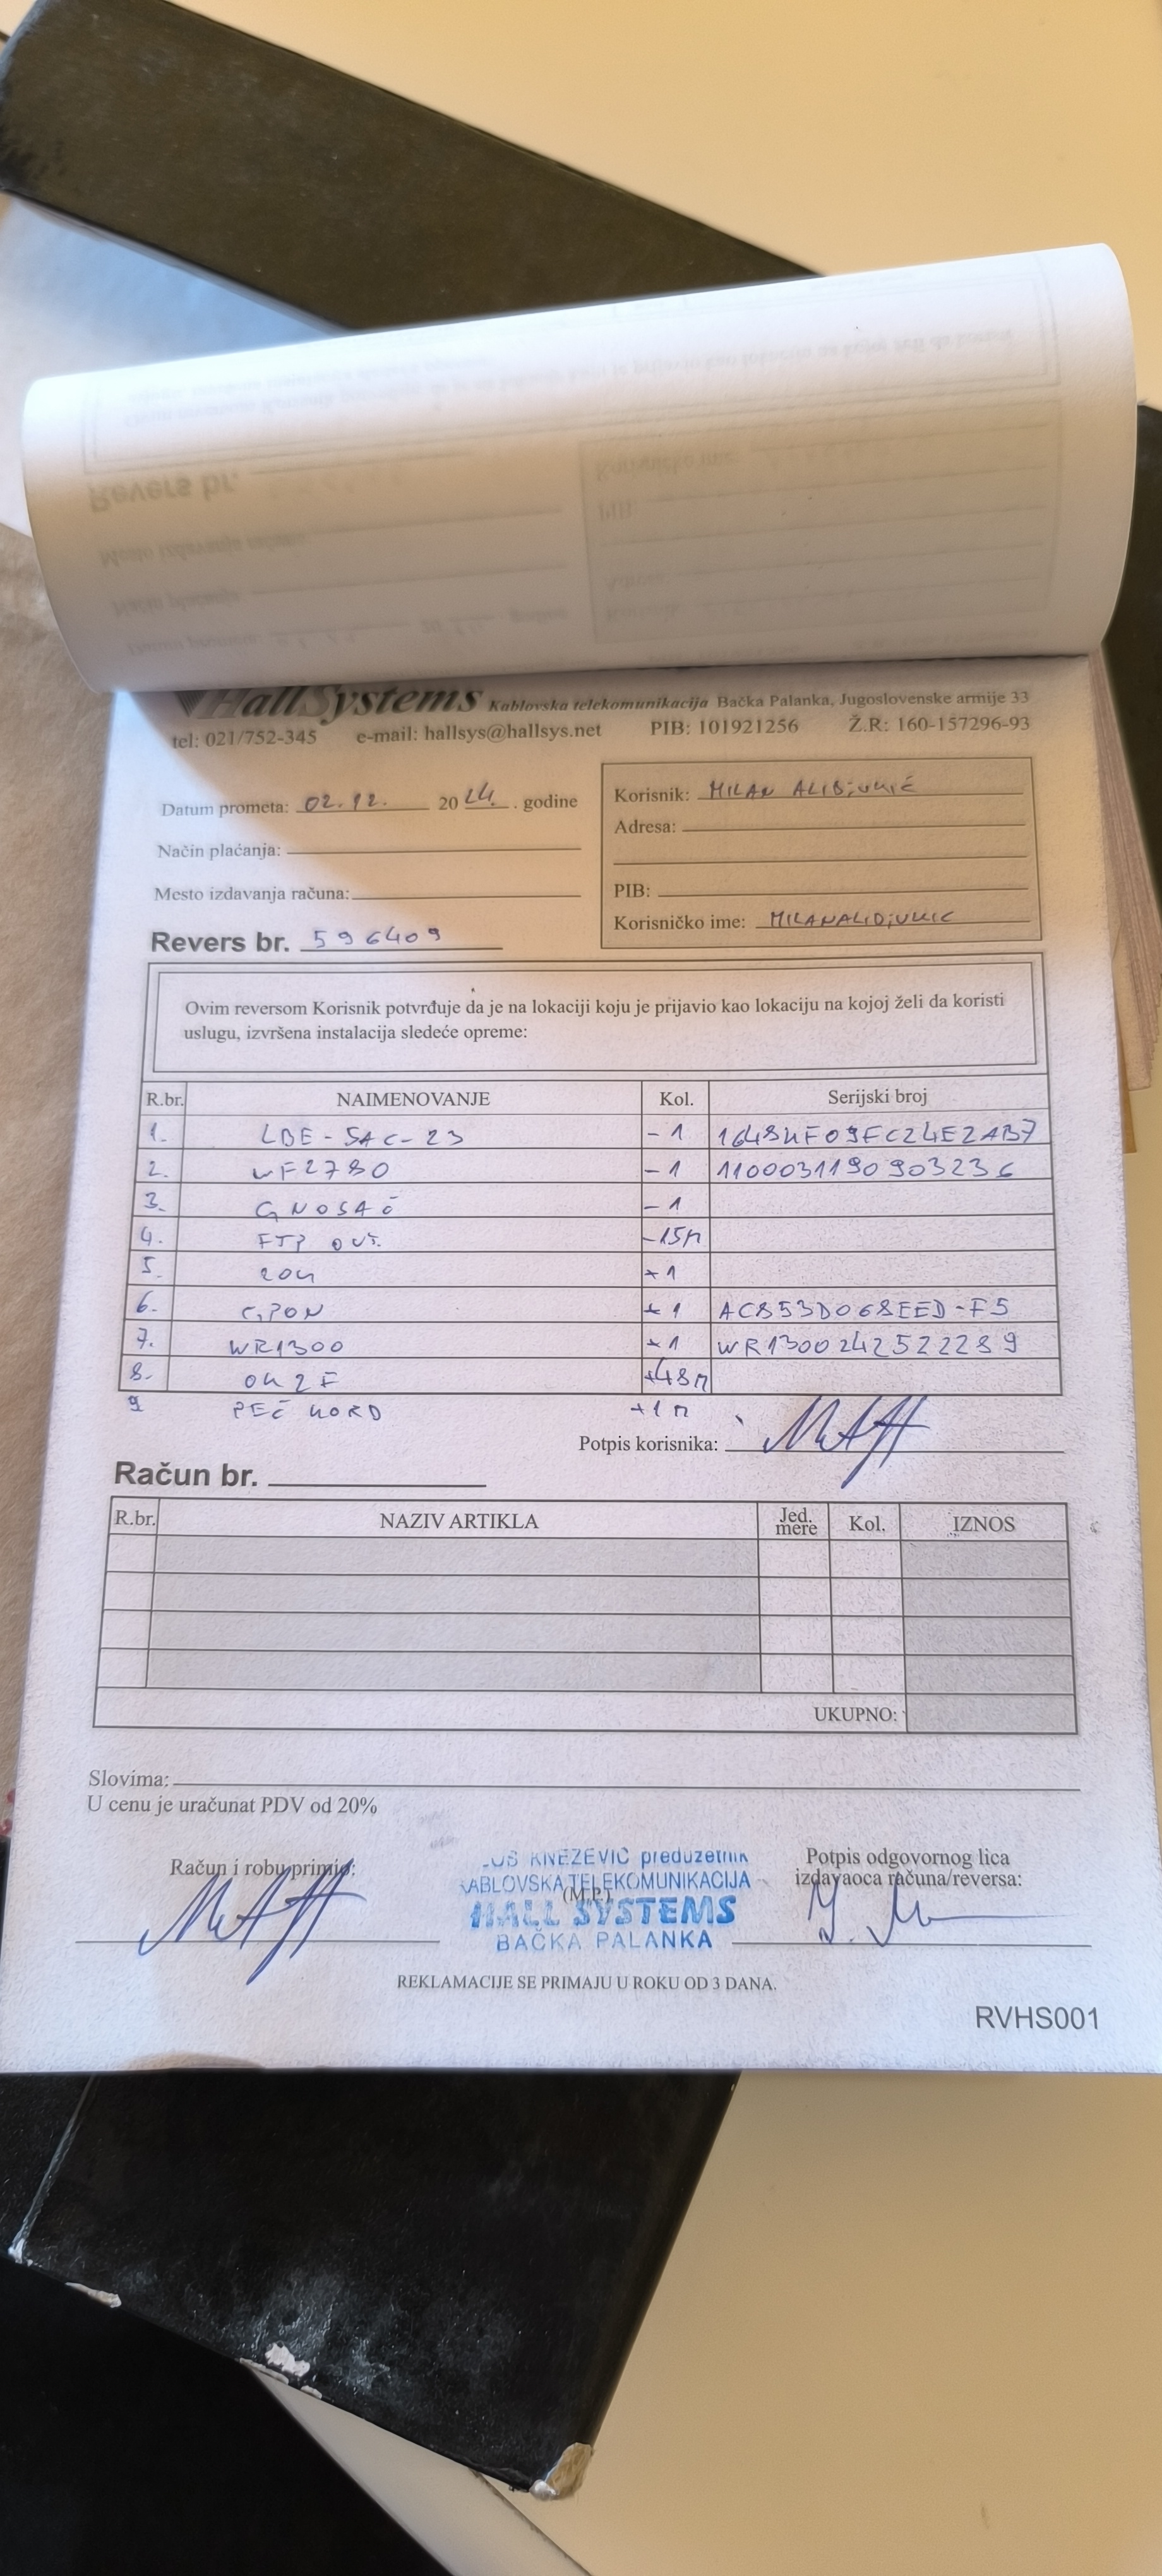 HallSystems Kablovska telekomunikacija Bačka Palanka, Jugoslovenske armije 33
tel: 021/752-345 e-mail: hallsys@hallsys.net PIB: 101921256 Ž.R: 160-157296-93
Datum prometa: 02.12. 2024. godine
Način plaćanja:
Mesto izdavanja računa:
Revers br. 596409
Korisnik: MILAN
Adresa:
PIB:
Korisničko ime:
Ovim reversom Korisnik potvrđuje da je na lokaciji koju je prijavio kao lokaciju na kojoj želi da koristi
uslugu, izvršena instalacija sledeće opreme:
R.br. NAIMENOVANJE Kol. Serijski broj
1. LBE-5AC-23 -1
2. WF2780 -1 1100031190903236
3. G NOSAČ -1
4. FTP OUT. -15m
5. ZOK +1
6. GPON +1 AC853D068EED-F5
7. WR1300 +1 WR1300242522289
8. OK 2F +48m
9 PEČ KORD +1m
Potpis korisnika:
Račun br.
R.br. NAZIV ARTIKLA Jed. mere Kol. IZNOS
UKUPNO:
Slovima:
U cenu je uračunat PDV od 20%
Račun i robu primio:
KNEZEVIC preduzetnik
KABLOVSKA TELEKOMUNIKACIJA
(M.P.)
HALL SYSTEMS
BAČKA PALANKA
Potpis odgovornog lica
izdavaoca računa/reversa:
REKLAMACIJE SE PRIMAJU U ROKU OD 3 DANA.
RVHS001